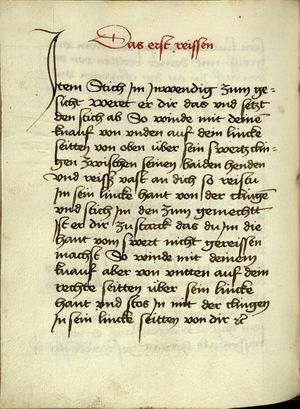 Das erst reissen
Item Stich Im Inwendig zum ge-
sicht weret er dir das und setzt
den stich ab So winde mit deine
knauf von unden auf dem lincke
seitten von oben über sein swertz clin-
gen zwischen seinen baiden henden
Und reiss vast an dich so reistu
Im sein lincke hant von der clinge
und stich Im den zum gemechtt
Ist er dir zu starck das du Im die
hant vom swert nicht gereissen
machst So winde mit deinem
knauf aber von untten auf dem
rechte seitten über sein lincke
hant und stos In mit der clingen
In sein lincke seitten von dir